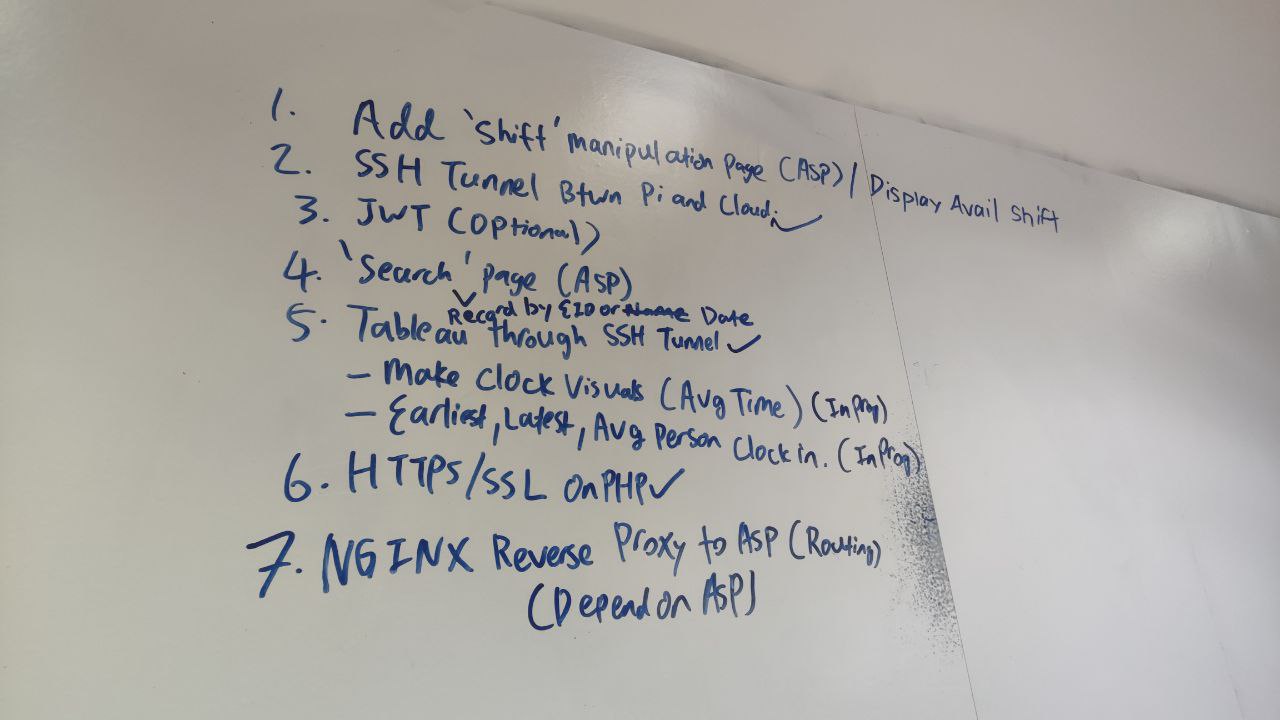 1. Add 'Shift' manipulation page (ASP) / Display Avail Shift
2. SSH Tunnel Btwn Pi and Cloud. ✓
3. JWT (Optional)
4. 'Search' page (ASP)
Record by EID or ~~Name~~ Date
5. Tableau through SSH Tunnel ✓
- Make Clock Visuals (Avg Time) (In Prog)
- Earliest, Latest, Avg Person Clock in. (In Prog)
6. HTTPS/SSL on PHP ✓
7. NGINX Reverse Proxy to ASP (Routing)
(Depend on ASP)